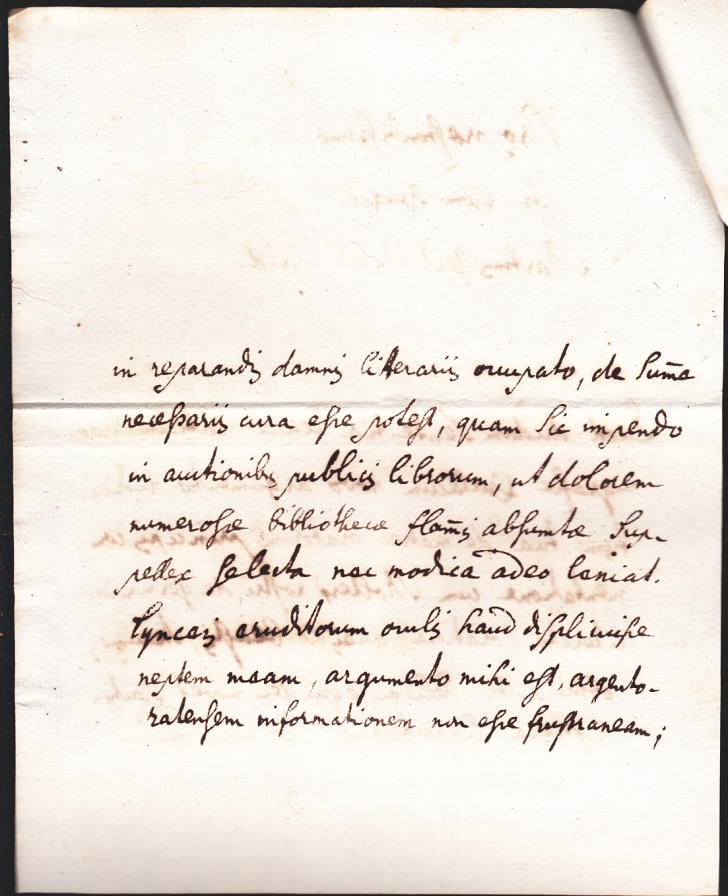 in reparandis damnis literariis occupato, de Suma
necessariis cura esse potest, quam Sic impendo
in auctionibus publicis librorum, ut dolorem
numerosæ bibliothecæ flamis absumtæ Sup-
pellex Selecta nec modica adeo leniat.
Lynceis eruditorum oculis haud displicuisse
neptem meam, argumento mihi est, argento-
ratensem informationem non esse frustraneam;